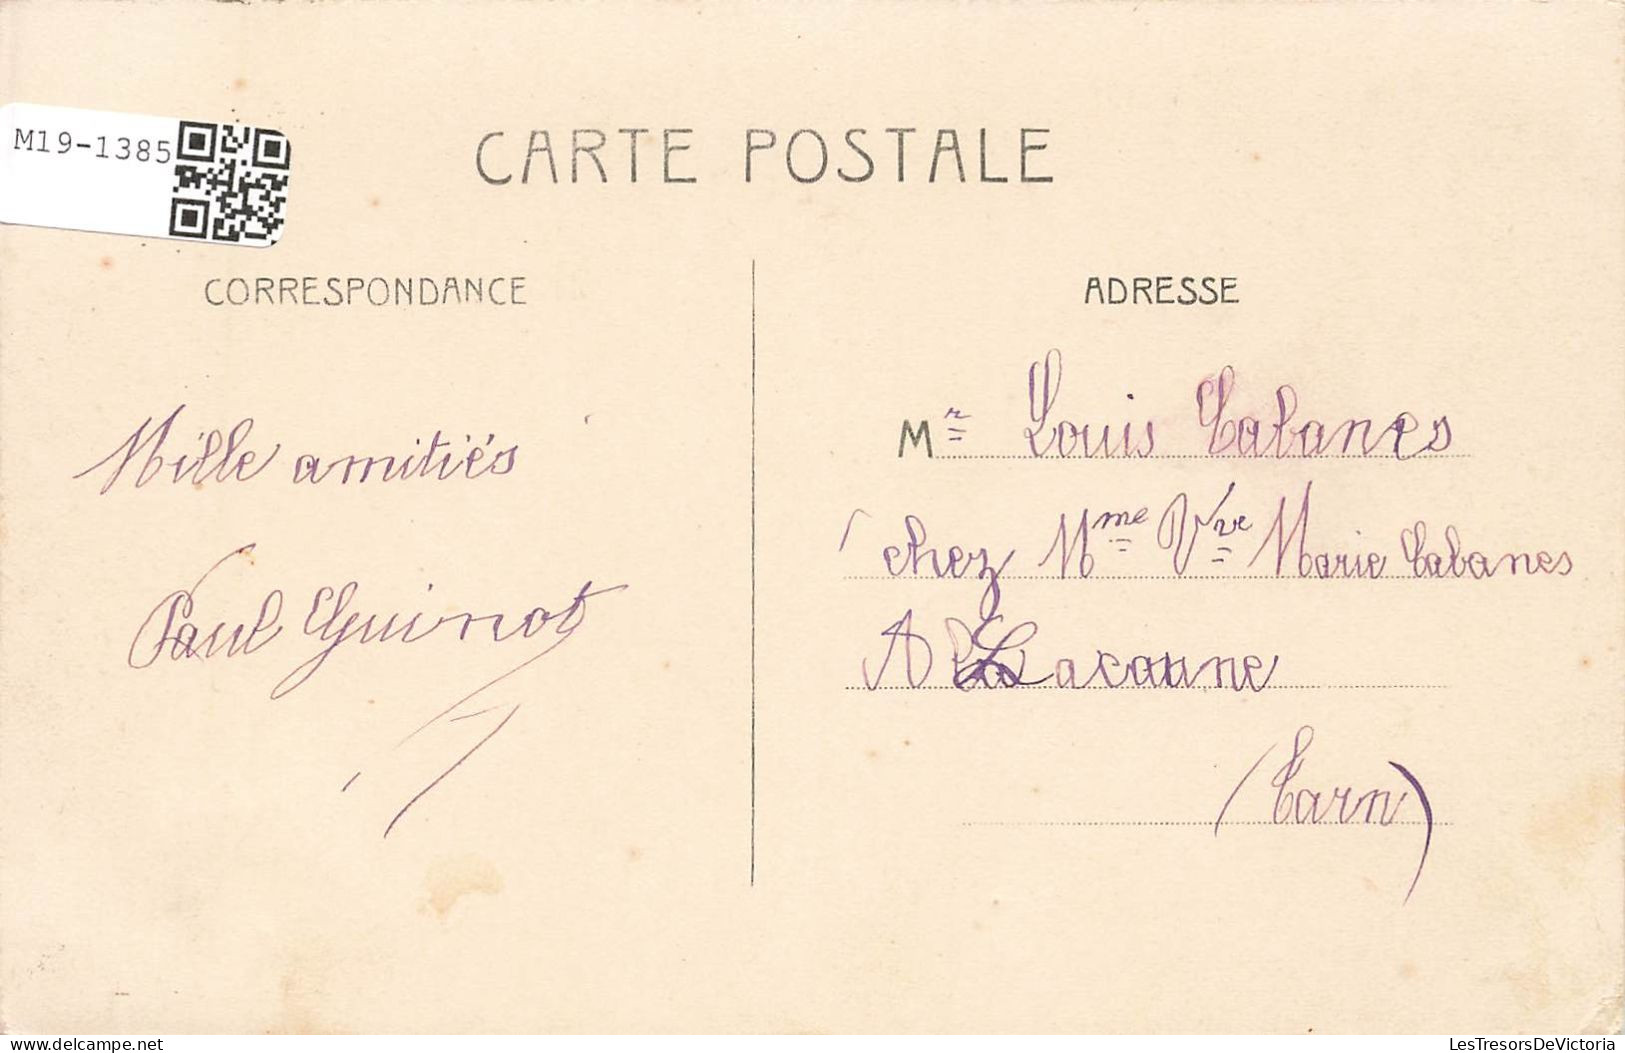 M19-1385
CARTE POSTALE
CORRESPONDANCE
Mille amitiés
Paul Guinot
ADRESSE
Mr Louis Cabanes
chez Mme Vve Marie Cabanes
A Lacaune
(Tarn)
delcampe.net
LesTresorsDeVictoria